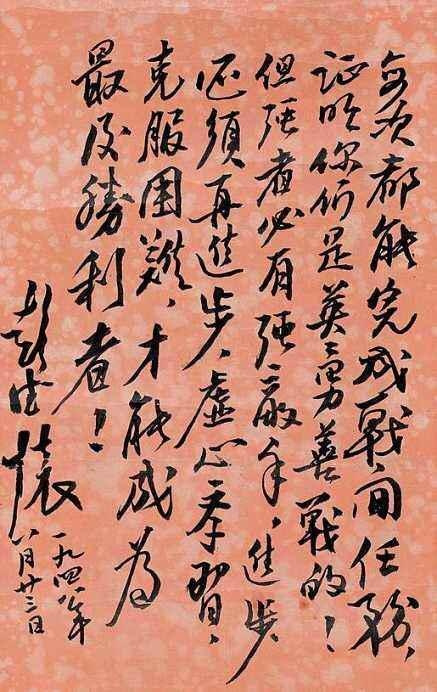 每次都能完成戰间任務，
証明你们是英勇善戰的！
但强者必有强敵手，進步
还须再進步，虚心季習，
克服困難，才能成为
最后勝利者！
彭德懷
一九四八年
八月廿三日